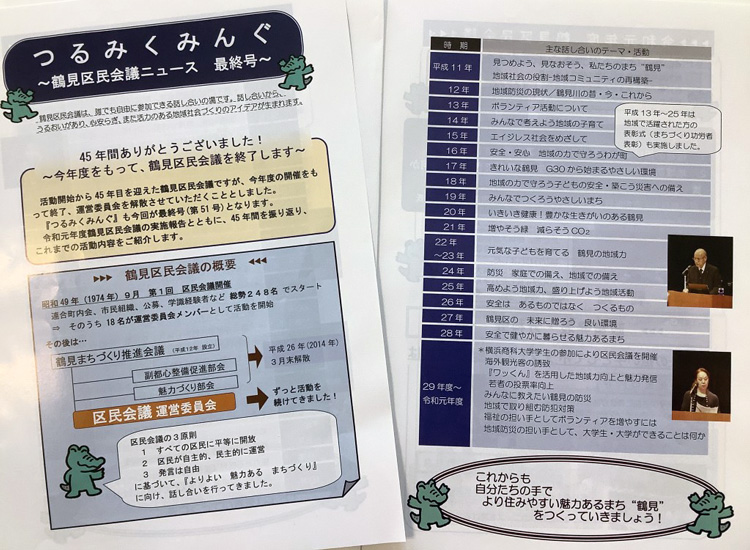 つるみくみんぐ
～鶴見区民会議ニュース　最終号～
鶴見区民会議は、誰でも自由に参加できる話し合いの場です。話し合いから、
うるおいがあり、心安らぎ、また活力のある地域社会づくりのアイデアが生まれます。
45年間ありがとうございました！
～今年度をもって、鶴見区民会議を終了します～
活動開始から45年目を迎えた鶴見区民会議ですが、今年度の開催をも
って終了、運営委員会を解散させていただくこととしました。
『つるみくみんぐ』も今回が最終号(第51号)となります。
令和元年度鶴見区民会議の実施報告とともに、45年間を振り返り、
これまでの活動内容をご紹介します。
▶▶▶ 鶴見区民会議の概要 ◀◀◀
昭和49年（1974年）9月　第1回　区民会議開催
連合町内会、市民組織、公募、学識経験者など 総勢248名 でスタート
⇒　そのうち 18名が運営委員会メンバーとして活動を開始
その後は…
鶴見まちづくり推進会議（平成12年 設立）
副都心整備促進部会
魅力づくり部会
平成26年(2014年)
3月末解散
区民会議 運営委員会
ずっと活動を
続けてきました！
区民会議の3原則
1　すべての区民に平等に開放
2　区民が自主的、民主的に運営
3　発言は自由
に基づいて、『よりよい　魅力ある　まちづくり』
に向け、話し合いを行ってきました。
時　期　主な話し合いのテーマ・活動
平成11年　見つめよう、見なおそう、私たちのまち“鶴見”
地域社会の役割-地域コミュニティの再構築-
12年　地域防災の現状／鶴見川の昔・今・これから
13年　ボランティア活動について
14年　みんなで考えよう地域の子育て
15年　エイジレス社会をめざして
16年　安全・安心　地域の力で守ろうわが町
平成13年～25年は
地域で活躍された方の
表彰式（まちづくり功労者
表彰）も実施しました。
17年　きれいな鶴見　G30から始まるやさしい環境
18年　地域の力で守ろう子どもの安全・築こう災害への備え
19年　みんなでつくろうやさしいまち
20年　いきいき健康！豊かな生きがいのある鶴見
21年　増やそう緑　減らそうCO₂
22年
～23年　元気な子どもを育てる　鶴見の地域力
24年　防災　家庭での備え、地域での備え
25年　高めよう地域力、盛り上げよう地域活動
26年　安全は　あるものではなく　つくるもの
27年　鶴見区の　未来に贈ろう　良い環境
28年　安全で健やかに暮らせる魅力あるまち
29年度～
令和元年度
＊横浜商科大学学生の参加により区民会議を開催
海外観光客の誘致
『ワッくん』を活用した地域力向上と魅力発信
若者の投票率向上
みんなに教えたい鶴見の防災
地域で取り組む防犯対策
福祉の担い手としてボランティアを増やすには
地域防災の担い手として、大学生・大学ができることは何か
これからも
自分たちの手で
より住みやすい魅力あるまち“鶴見”
をつくっていきましょう！